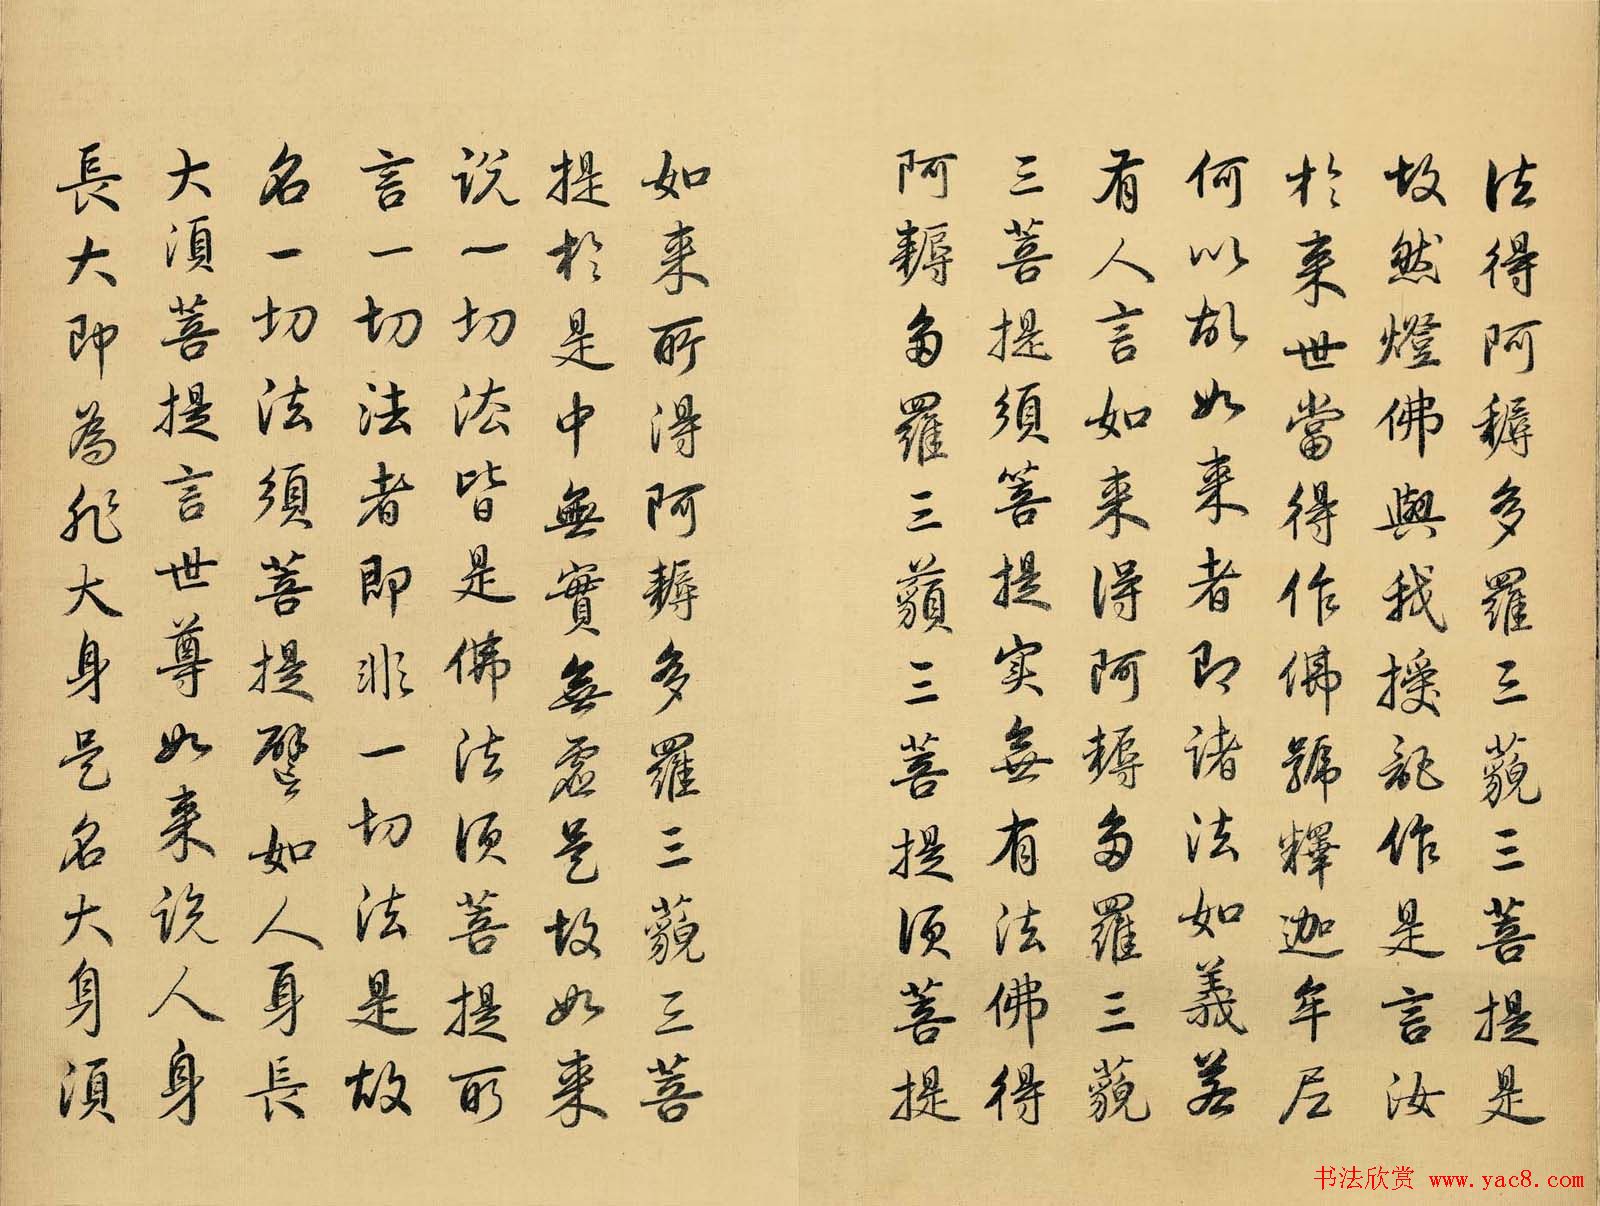 法得阿耨多羅三藐三菩提是
故然燈佛與我授記作是言汝
於來世當得作佛號釋迦牟尼
何以故如來者即諸法如義若
有人言如來得阿耨多羅三藐
三菩提須菩提实無有法佛得
阿耨多羅三藐三菩提須菩提
如來所得阿耨多羅三藐三菩
提於是中無實無虛是故如來
說一切法皆是佛法須菩提所
言一切法者即非一切法是故
名一切法須菩提譬如人身長
大須菩提言世尊如來說人身
長大即為非大身是名大身須
书法欣赏 www.yac8.com